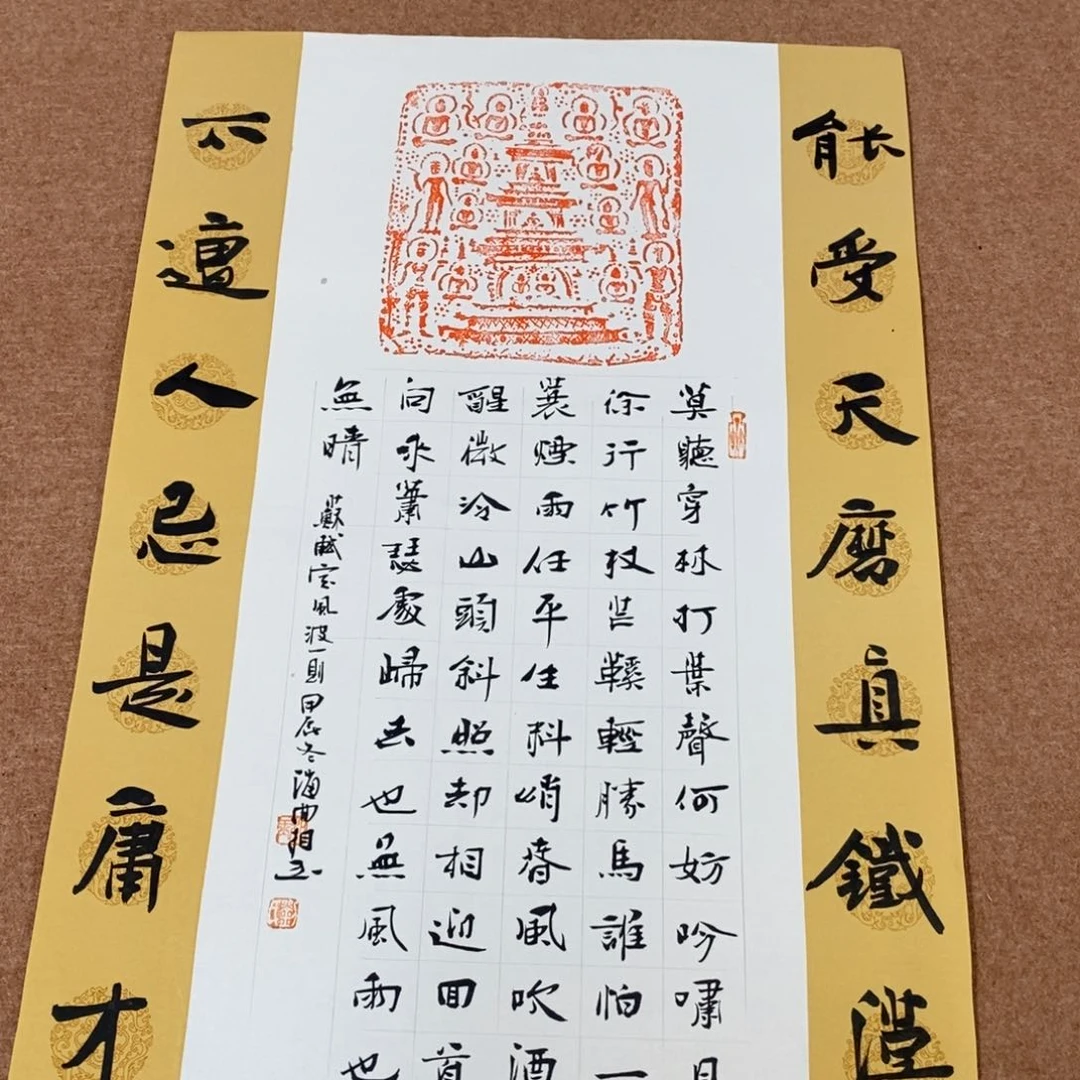 能受天磨真鐵漢
莫聽穿林打葉聲何妨吟嘯且
徐行竹杖芒鞵輕勝馬誰怕一
蓑煙雨任平生料峭春風吹酒
醒微冷山頭斜照却相迎回首
向來蕭瑟處歸去也無風雨也
無晴
蘇軾定風波一則甲辰冬海曲相玉
不遭人忌是庸才